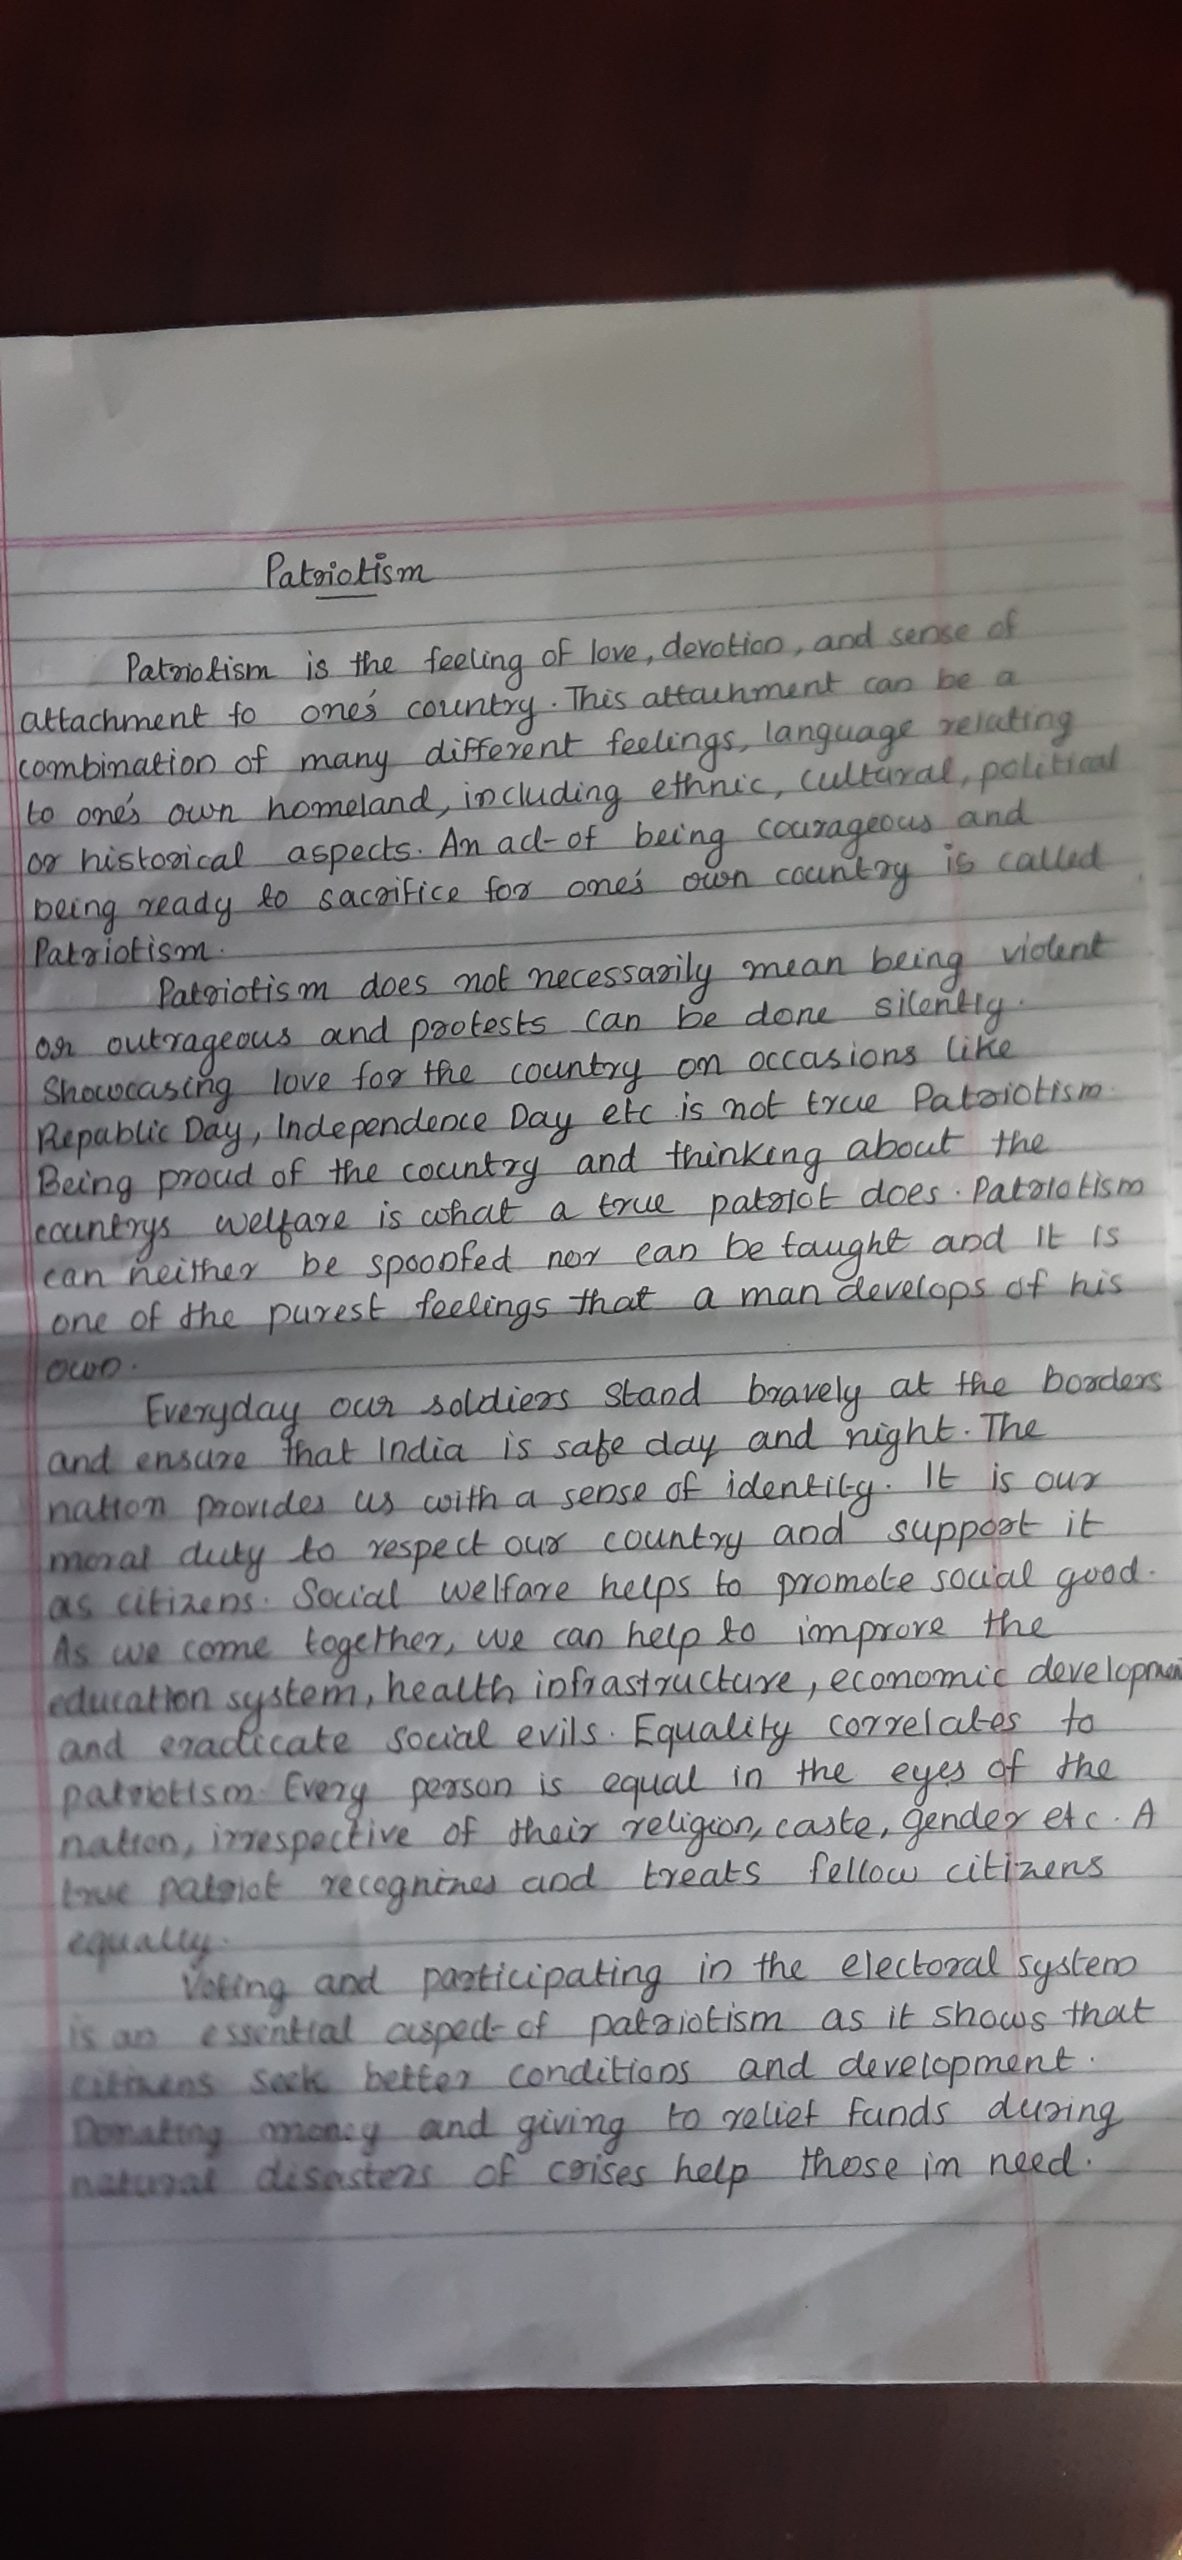 Patriotism
Patriotism is the feeling of love, devotion, and sense of
attachment to one's country. This attachment can be a
combination of many different feelings, language relating
to one's own homeland, including ethnic, cultural, political
or historical aspects. An act of being courageous and
being ready to sacrifice for one's own country is called
Patriotism.
Patriotism does not necessarily mean being violent
or outrageous and protests can be done silently.
Showcasing love for the country on occasions like
Republic Day, Independence Day etc is not true Patriotism.
Being proud of the country and thinking about the
countrys welfare is what a true patriot does. Patriotism
can neither be spoonfed nor can be taught and it is
one of the purest feelings that a man develops of his
own.
Everyday our soldiers stand bravely at the borders
and ensure that India is safe day and night. The
nation provides us with a sense of identity. It is our
moral duty to respect our country and support it
as citizens. Social welfare helps to promote social good.
As we come together, we can help to improve the
education system, health infrastructure, economic development
and eradicate social evils. Equality correlates to
patriotism. Every person is equal in the eyes of the
nation, irrespective of their religion, caste, gender etc. A
true patriot recognizes and treats fellow citizens
equally.
Voting and participating in the electoral system
is an essential aspect of patriotism as it shows that
citizens seek better conditions and development.
Donating money and giving to relief funds during
natural disasters of crises help those in need.